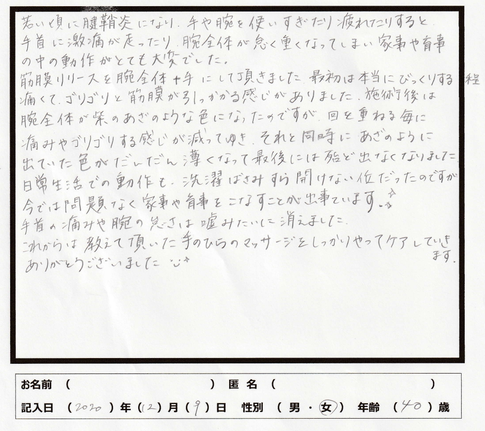 若い頃に腱鞘炎になり、手や腕を使いすぎたり疲れたりすると
手首に激痛が走ったり、腕全体が怠く重くなってしまい家事や育事
の中の動作がとても大変でした。
筋膜リリースを腕全体+手にして頂きました 最初は本当にびっくりする程
痛くて、ゴリゴリと筋膜が引っかかる感じがありました。施術後は
腕全体が紫のあざのような色になったのですが 回を重ねる毎に
痛みやゴリゴリする感じが減ってゆき、それと同時にあざのように
出ていた色がだんだん薄くなって最後には殆ど出なくなりました
日常生活での動作も、洗濯ばさみすら開けない位だったのですが
今では問題なく家事や育事をこなすことが出来ています。
手首の痛みや腕の怠さは嘘みたいに消えました。
これからは教えて頂いた手のひらのマッサージをしっかりやってケアしていきます。
ありがとうございました
お名前 ( ) 匿名 ( )
記入日 (2020) 年 (12) 月 (9) 日 性別 (男・女) 年齢 (40) 歳